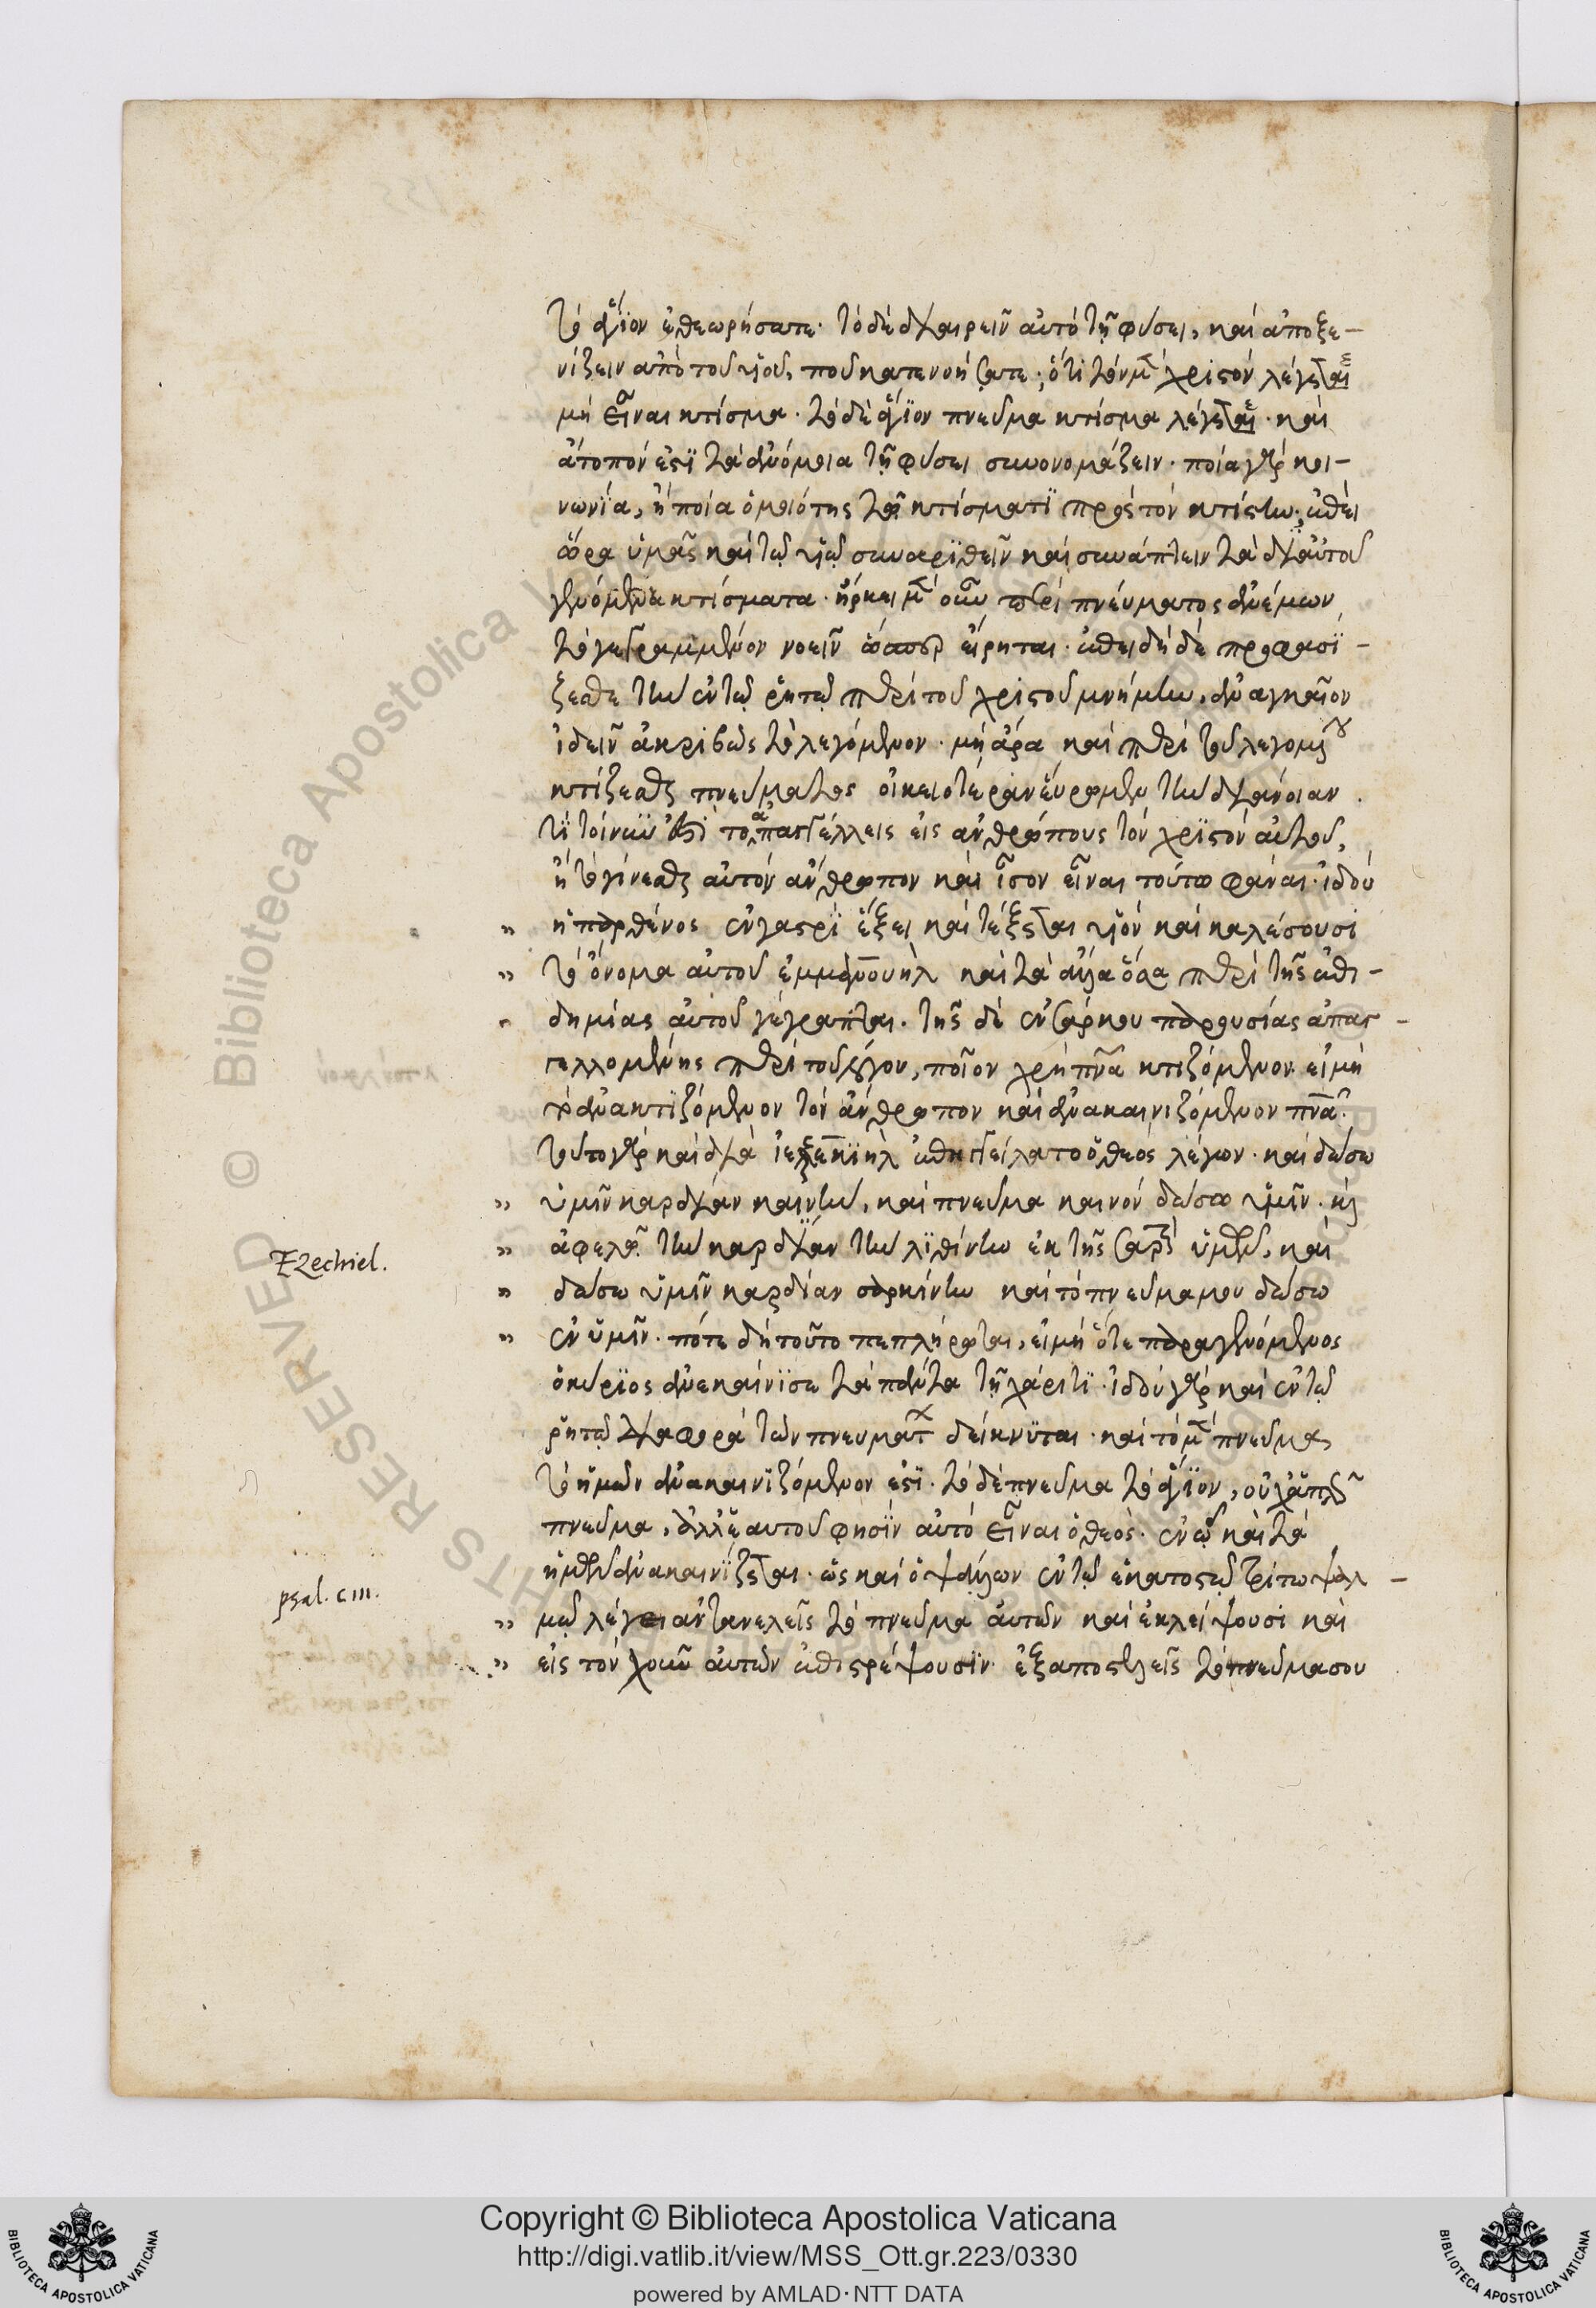 τὸ ἅγιον ἐθεωρήσατε. τὸ δὲ διαιρεῖν αὐτὸ τῇ φύσει, καὶ ἀποξε-
νίζειν ἀπὸ τοῦ υἱοῦ, ποῦ κατενοήσατε; ὅτι τὸν μὲν χριστὸν λέγεται
μὴ εἶναι κτίσμα. τὸ δὲ ἅγιον πνεῦμα κτίσμα λέγεται. καὶ
ἄτοπόν ἐστι τὰ ἀνόμοια τῇ φύσει συνονομάζειν. ποία γὰρ κοι-
νωνία, ἢ ποία ὁμοιότης τῷ κτίσματι πρὸς τὸν κτίστην; ἐπεὶ
ὥρα ὑμᾶς καὶ τῷ υἱῷ συναριθμεῖν καὶ συνάπτειν τὰ δι' αὐτοῦ
γενόμενα κτίσματα. ἤρκει μὲν οὖν περὶ πνεύματος ἀνέμων
τὸ γεγραμμένον νοεῖν ὥσπερ εἴρηται. ἐπειδὴ δὲ προφασί-
ζεσθε τὴν ἐν τῷ ῥητῷ περὶ τοῦ χριστοῦ μνήμην, ἀναγκαῖον
ἰδεῖν ἀκριβῶς τὸ λεγόμενον. μὴ ἄρα καὶ περὶ τοῦ λεγομένου
κτίζεσθαι πνεύματος οἰκειοτέραν εὕρωμεν τὴν διάνοιαν.
τί τοίνυν ἐστὶ τὸ ἀπαγγέλλεις εἰς ἀνθρώπους τὸν χριστὸν αὐτοῦ,
ἢ τὸ γίνεσθαι αὐτὸν ἄνθρωπον καὶ ἴσον εἶναι τούτῳ φάναι. ἰδοὺ
" ἡ παρθένος ἐν γαστρὶ ἕξει καὶ τέξεται υἱὸν καὶ καλέσουσι
" τὸ ὄνομα αὐτοῦ ἐμμανουὴλ καὶ τὰ ἄλλα ὅσα περὶ τῆς ἐπι-
" δημίας αὐτοῦ γέγραπται. τῆς δὲ ἐνσάρκου παρουσίας ἀπαγ-
γελλομένης περὶ τοῦ λόγου, ποῖον χρὴ πνα κτιζόμενον εἰ μὴ
τὸ ἀνακτιζόμενον τὸν ἄνθρωπον καὶ ἀνακαινιζόμενον πνα.
τοῦτο γὰρ καὶ διὰ ἰεζεκιὴλ ἐπηγγείλατο ὁ θεὸς λέγων. καὶ δώσω
" ὑμῖν καρδίαν καινὴν, καὶ πνεῦμα καινὸν δώσω ὑμῖν. καὶ
" ἀφελῶ τὴν καρδίαν τὴν λιθίνην ἐκ τῆς σαρκὸς ὑμῶν, καὶ
" δώσω ὑμῖν καρδίαν σαρκίνην καὶ τὸ πνεῦμα μου δώσω
" ἐν ὑμῖν. πότε δὴ τοῦτο πεπλήρωται, εἰ μὴ ὅτε παραγενόμενος
ὁ κύριος ἀνεκαίνισε τὰ πάντα τῇ χάριτι. ἰδοὺ γὰρ καὶ ἐν τῷ
ῥητῷ διαφορὰ τῶν πνευμάτων δείκνυται. καὶ τὸ μὲν πνεῦμα,
τὸ ἡμῶν ἀνακαινιζόμενον ἐστι. τὸ δὲ πνεῦμα τὸ ἅγιον, οὐχ ἁπλῶς
πνεῦμα, ἀλλ' ἑαυτοῦ φησὶν αὐτὸ εἶναι ὁ θεὸς. ἐν ᾧ καὶ τὰ
ἡμῶν ἀνακαινίζεται. ὡς καὶ ὁ ψάλλων ἐν τῷ ἑκατοστῷ τρίτῳ ψαλ-
" μῷ λέγει ἀντανελεῖς τὸ πνεῦμα αὐτῶν καὶ ἐκλείψουσι καὶ
" εἰς τὸν χοῦν αὐτῶν ἐπιστρέψουσιν. ἐξαποστελεῖς τὸ πνεῦμα σου
Ezechiel.
psal. cIII.
Copyright © Biblioteca Apostolica Vaticana
http://digi.vatlib.it/view/MSS_Ott.gr.223/0330
powered by AMLAD·NTT DATA
BIBLIOTECA APOSTOLICA VATICANA
BIBLIOTECA APOSTOLICA VATICANA